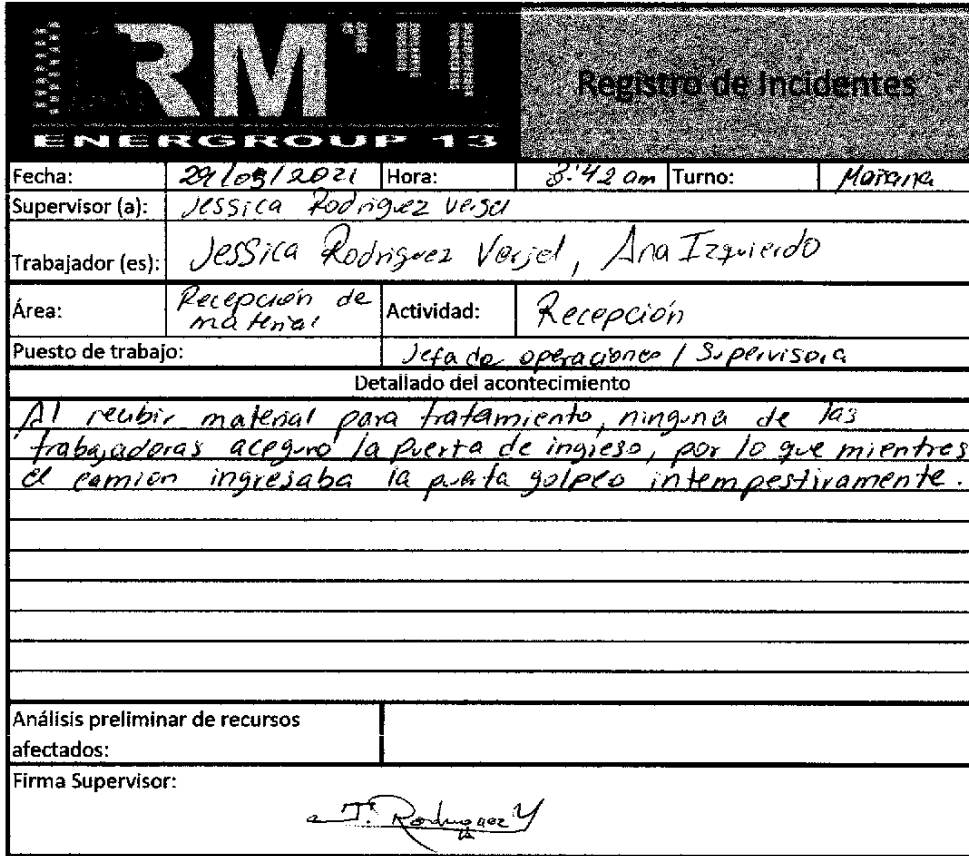 RM
ENERGROUP 13
Registro de Incidentes
Fecha: 29/09/2021 Hora: 8:42 am Turno: Mañana
Supervisor (a): Jessica Rodriguez Versel
Trabajador (es): Jessica Rodriguez Versel, Ana Izquierdo
Área: Recepción de material Actividad: Recepción
Puesto de trabajo: Jefa de operaciones / Supervisora
Detallado del acontecimiento
Al recibir material para tratamiento, ninguna de las
trabajadoras aceguro la puerta de ingreso, por lo que mientres
el camion ingresaba la puerta golpeo intempestivamente.
Análisis preliminar de recursos
afectados:
Firma Supervisor:
J. Rodriguez V